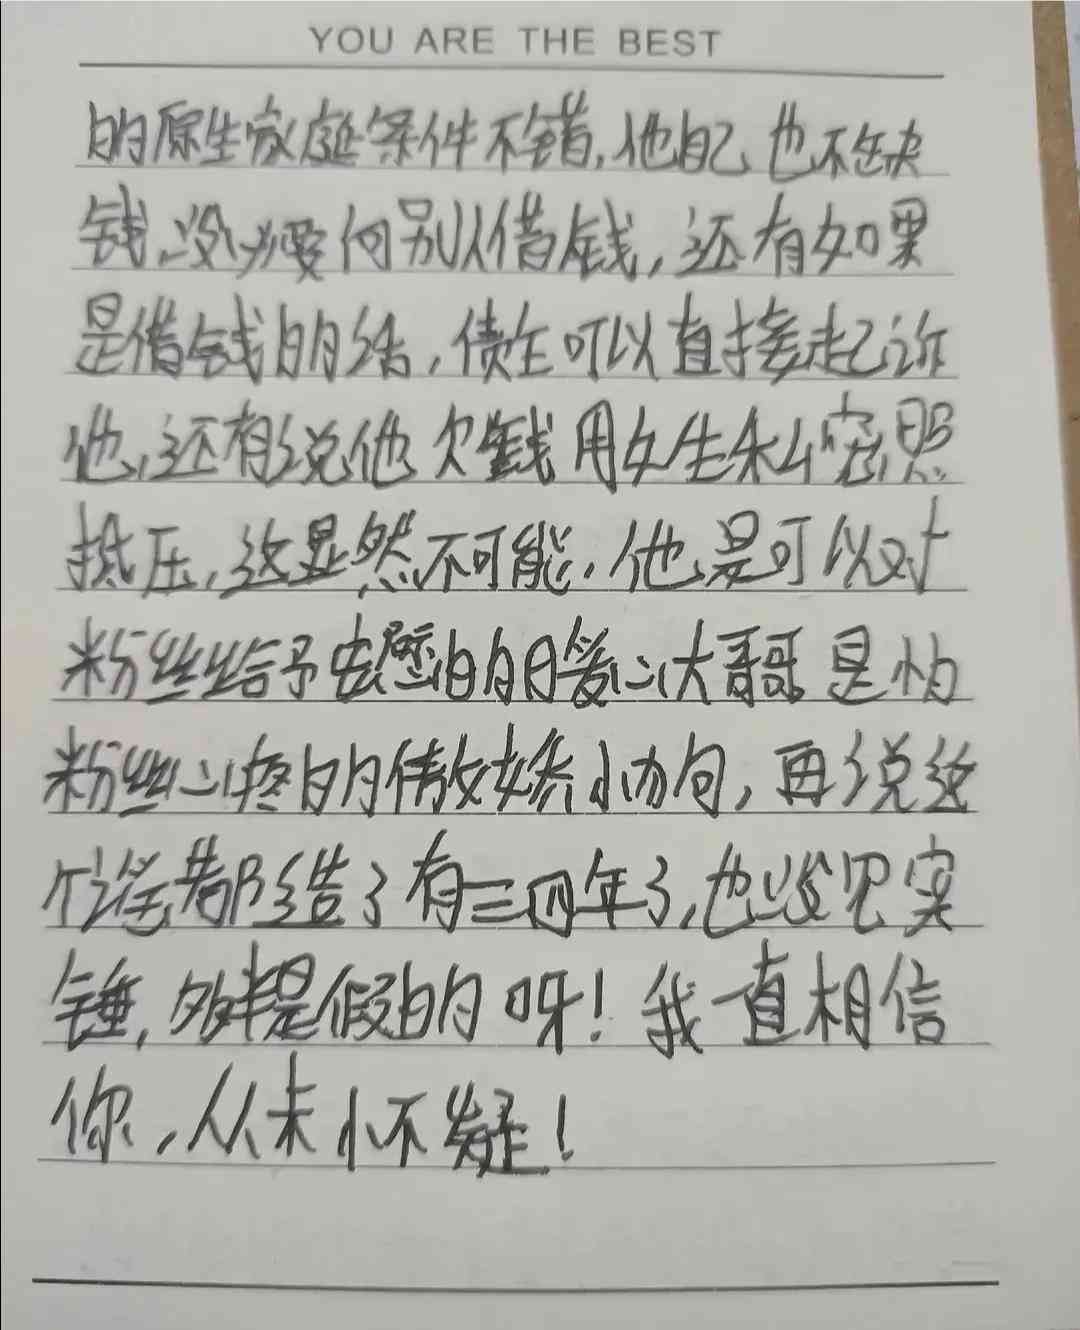 YOU ARE THE BEST
的原生家庭条件不错,他自己也不缺
钱,没必要向别人借钱,还有如果
是借钱的话,债主可以直接起诉
他,还有说他欠钱用女生私密照
抵压,这显然不可能,他是可以对
粉丝给予庇的日爱心大哥是怕
粉丝心疼的傲娇小向,再说这
个谣都造了有三四年了,也没见实
锤,多半是假的呀!我一直相信
你,从未怀疑!